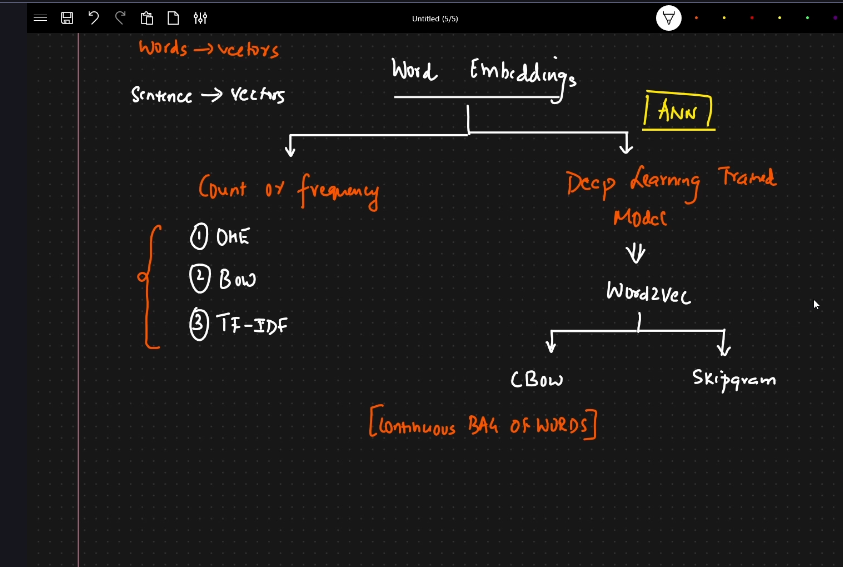 Untitled (5/5)
Words → vectors
Word Embeddings
Sentence → vectors
ANN
Count or frequency
Deep Learning Trained
Model
① OHE
② BOW
③ TF-IDF
Word2vec
CBOW
Skipgram
[Continuous BAG OF WORDS]